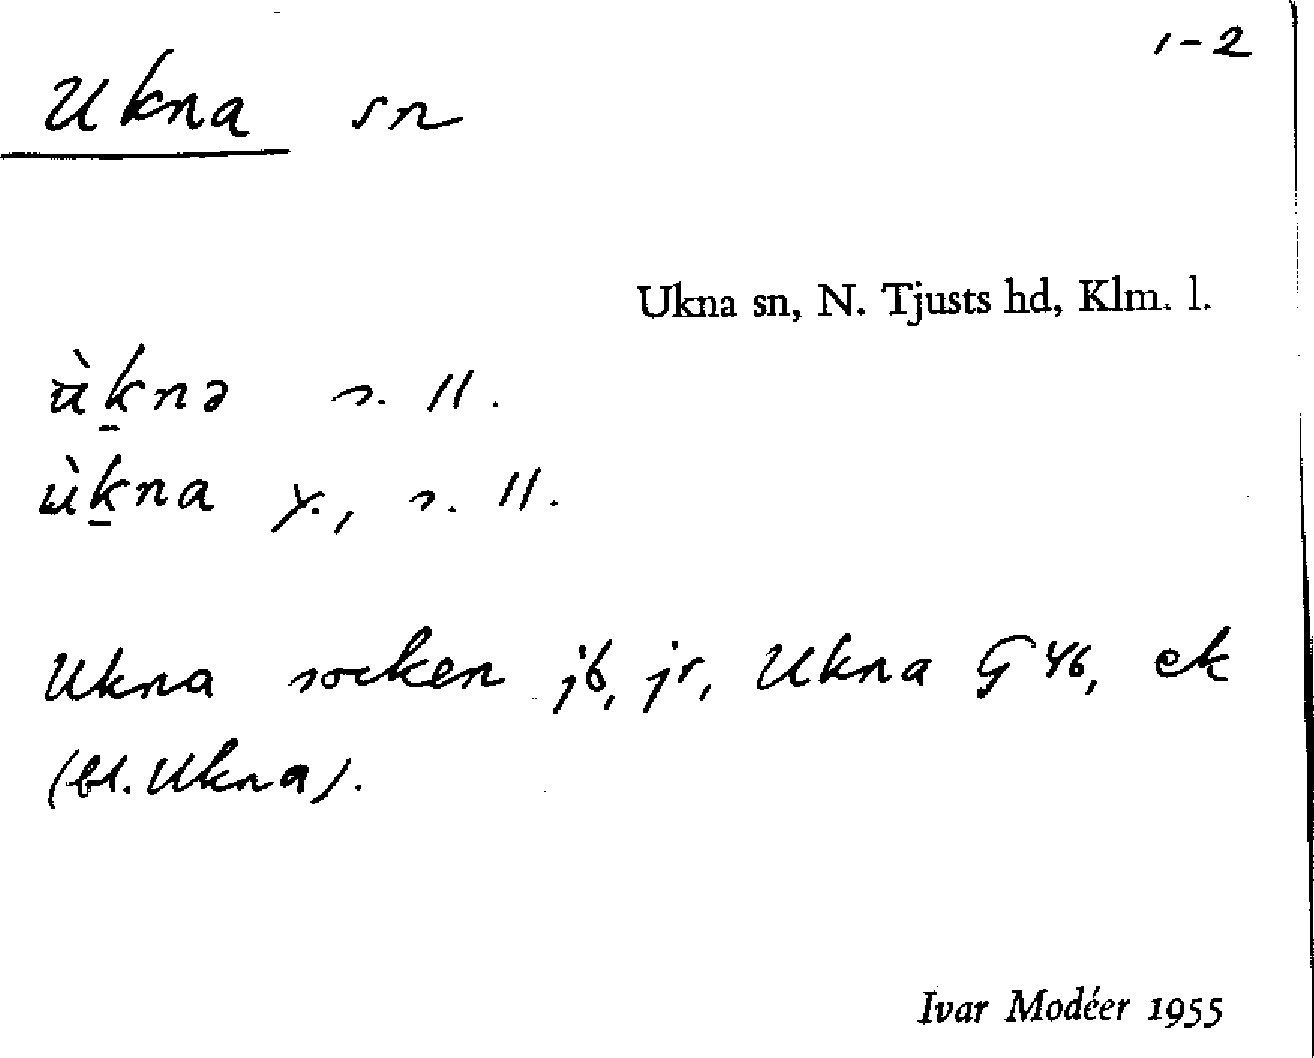 1-2
Ukna sn
Ukna sn, N. Tjusts hd, Klm. l.
ùk̲nə s. 11.
ùk̲na y., s. 11.
Ukna socken jb, jr, Ukna G 46, ek
(bl. Ukna).
Ivar Modéer 1955